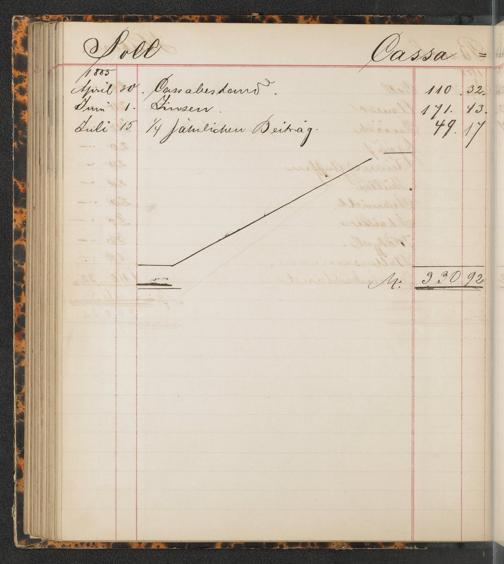 Soll Cassa =
1885
April 30. Cassabestand. 110. 32.
Juni 1. Zinsen. 171. 43.
Juli 15 1/4 Jährlichen Beitrag. 49. 17
M. 330 92